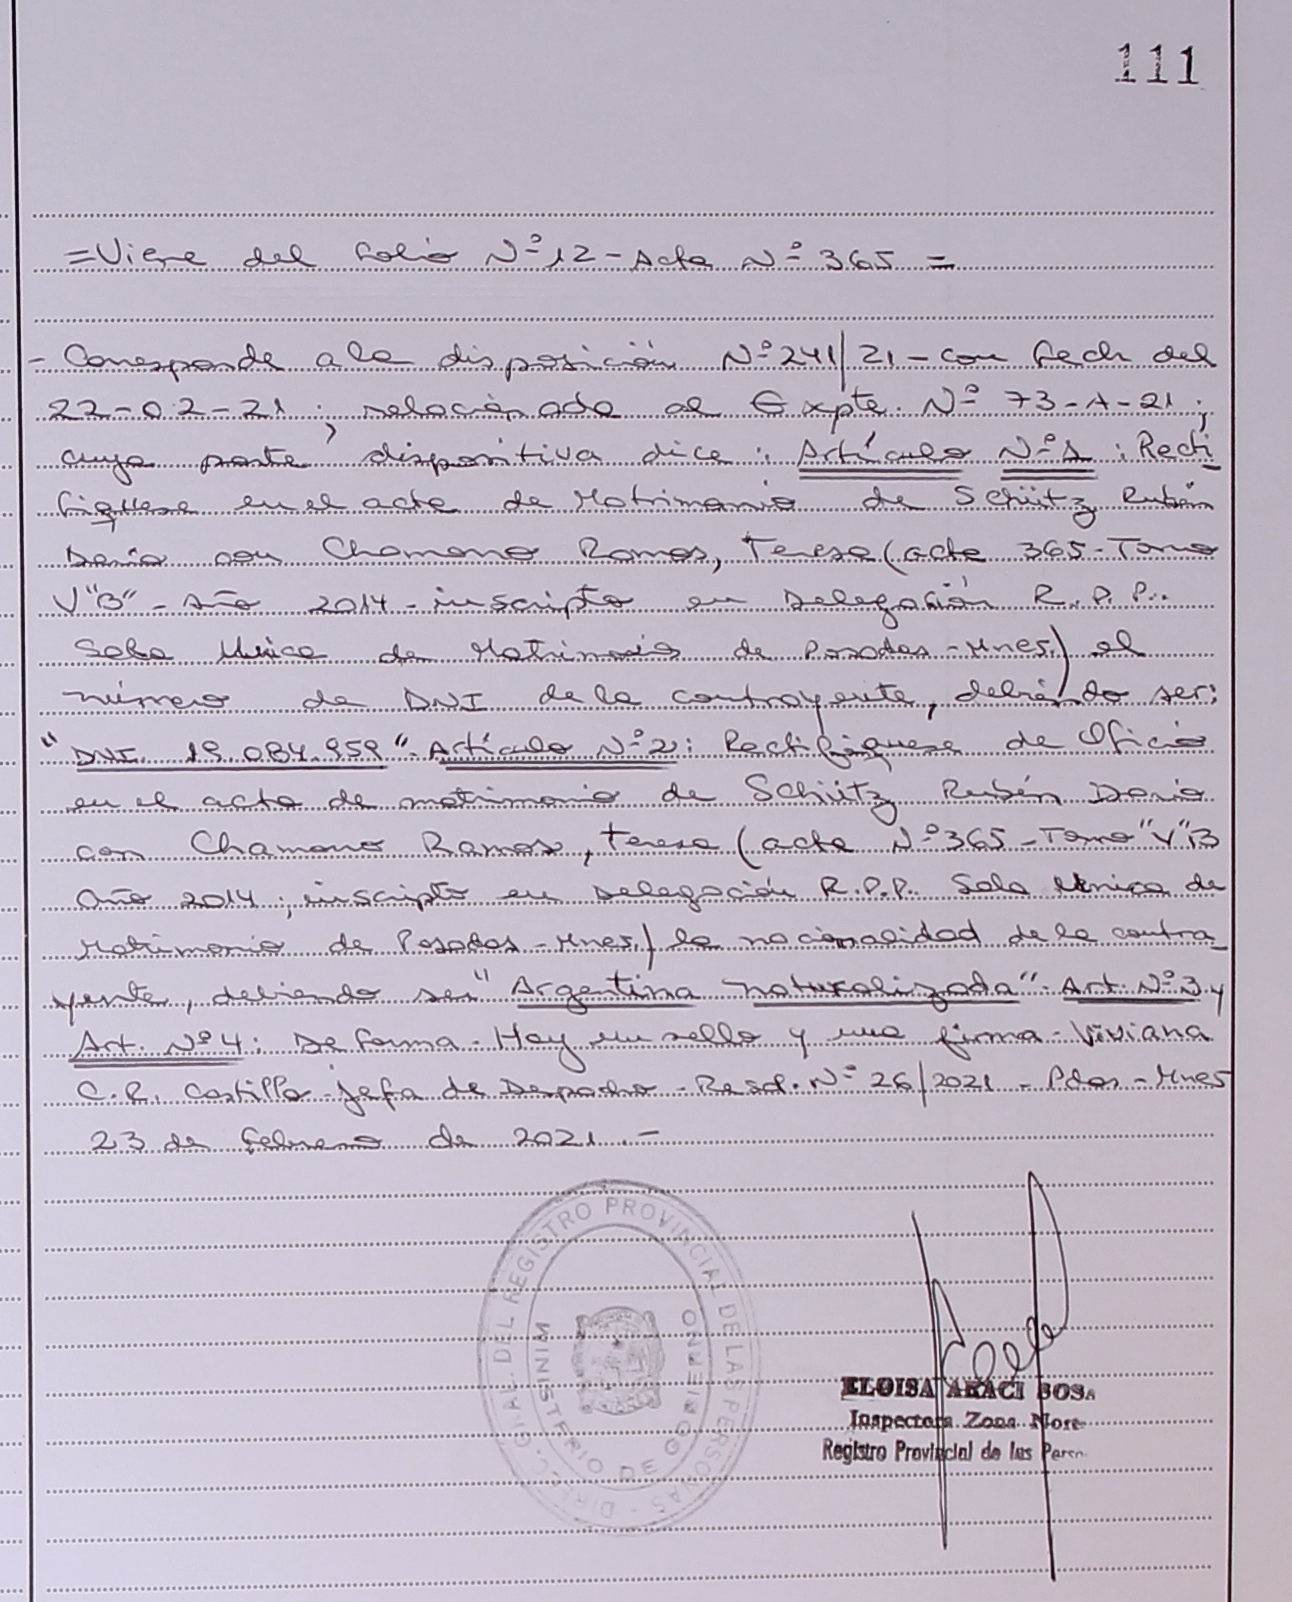 111
=Viene del folio Nº 12-Acta Nº 365 =
- Corresponde a la disposición Nº 241/21-con fech del
22-02-21; relacionada al Expte. Nº 73-A-21;
cuya parte dispositiva dice: Artículo Nº 1: Recti
fíquese en el acta de Matrimonio de Schütz Rubén
Dario con Chamono Ramos, Teresa (acta 365-Tomo
V"B"-Año 2014-inscripto en Delegación R.P.P.
Sala Unica de Matrimonio de Posadas-Mnes.) el
número de DNI de la contrayente, debiéndo ser:
"DNI. 19.084.959"-Artículo Nº 2: Rectifíquese de Oficio
en el acta de matrimonio de Schütz Rubén Dario
con Chamono Ramos, Teresa (acta Nº 365-Tomo"V"B
Año 2014; inscripto en Delegación R.P.P. Sala Unica de
Matrimonio de Posadas-Mnes.) la nacionalidad de la contra_
yente, debiendo ser "Argentina naturalizada"-Art. Nº 3 y
Art. Nº 4: De forma-Hay un sello y una firma-Viviana
C.R. Castillo-jefa de Despacho-Resol. Nº 26/2021-Pdas-Mnes
23 de febrero de 2021.-
DIREC. GRAL. DEL REGISTRO PROVINCIAL DE LAS PERSONAS -
MINISTERIO DE GOBIERNO
ELOISA ARACI BOSA
Inspectora Zona Norte
Registro Provincial de las Person